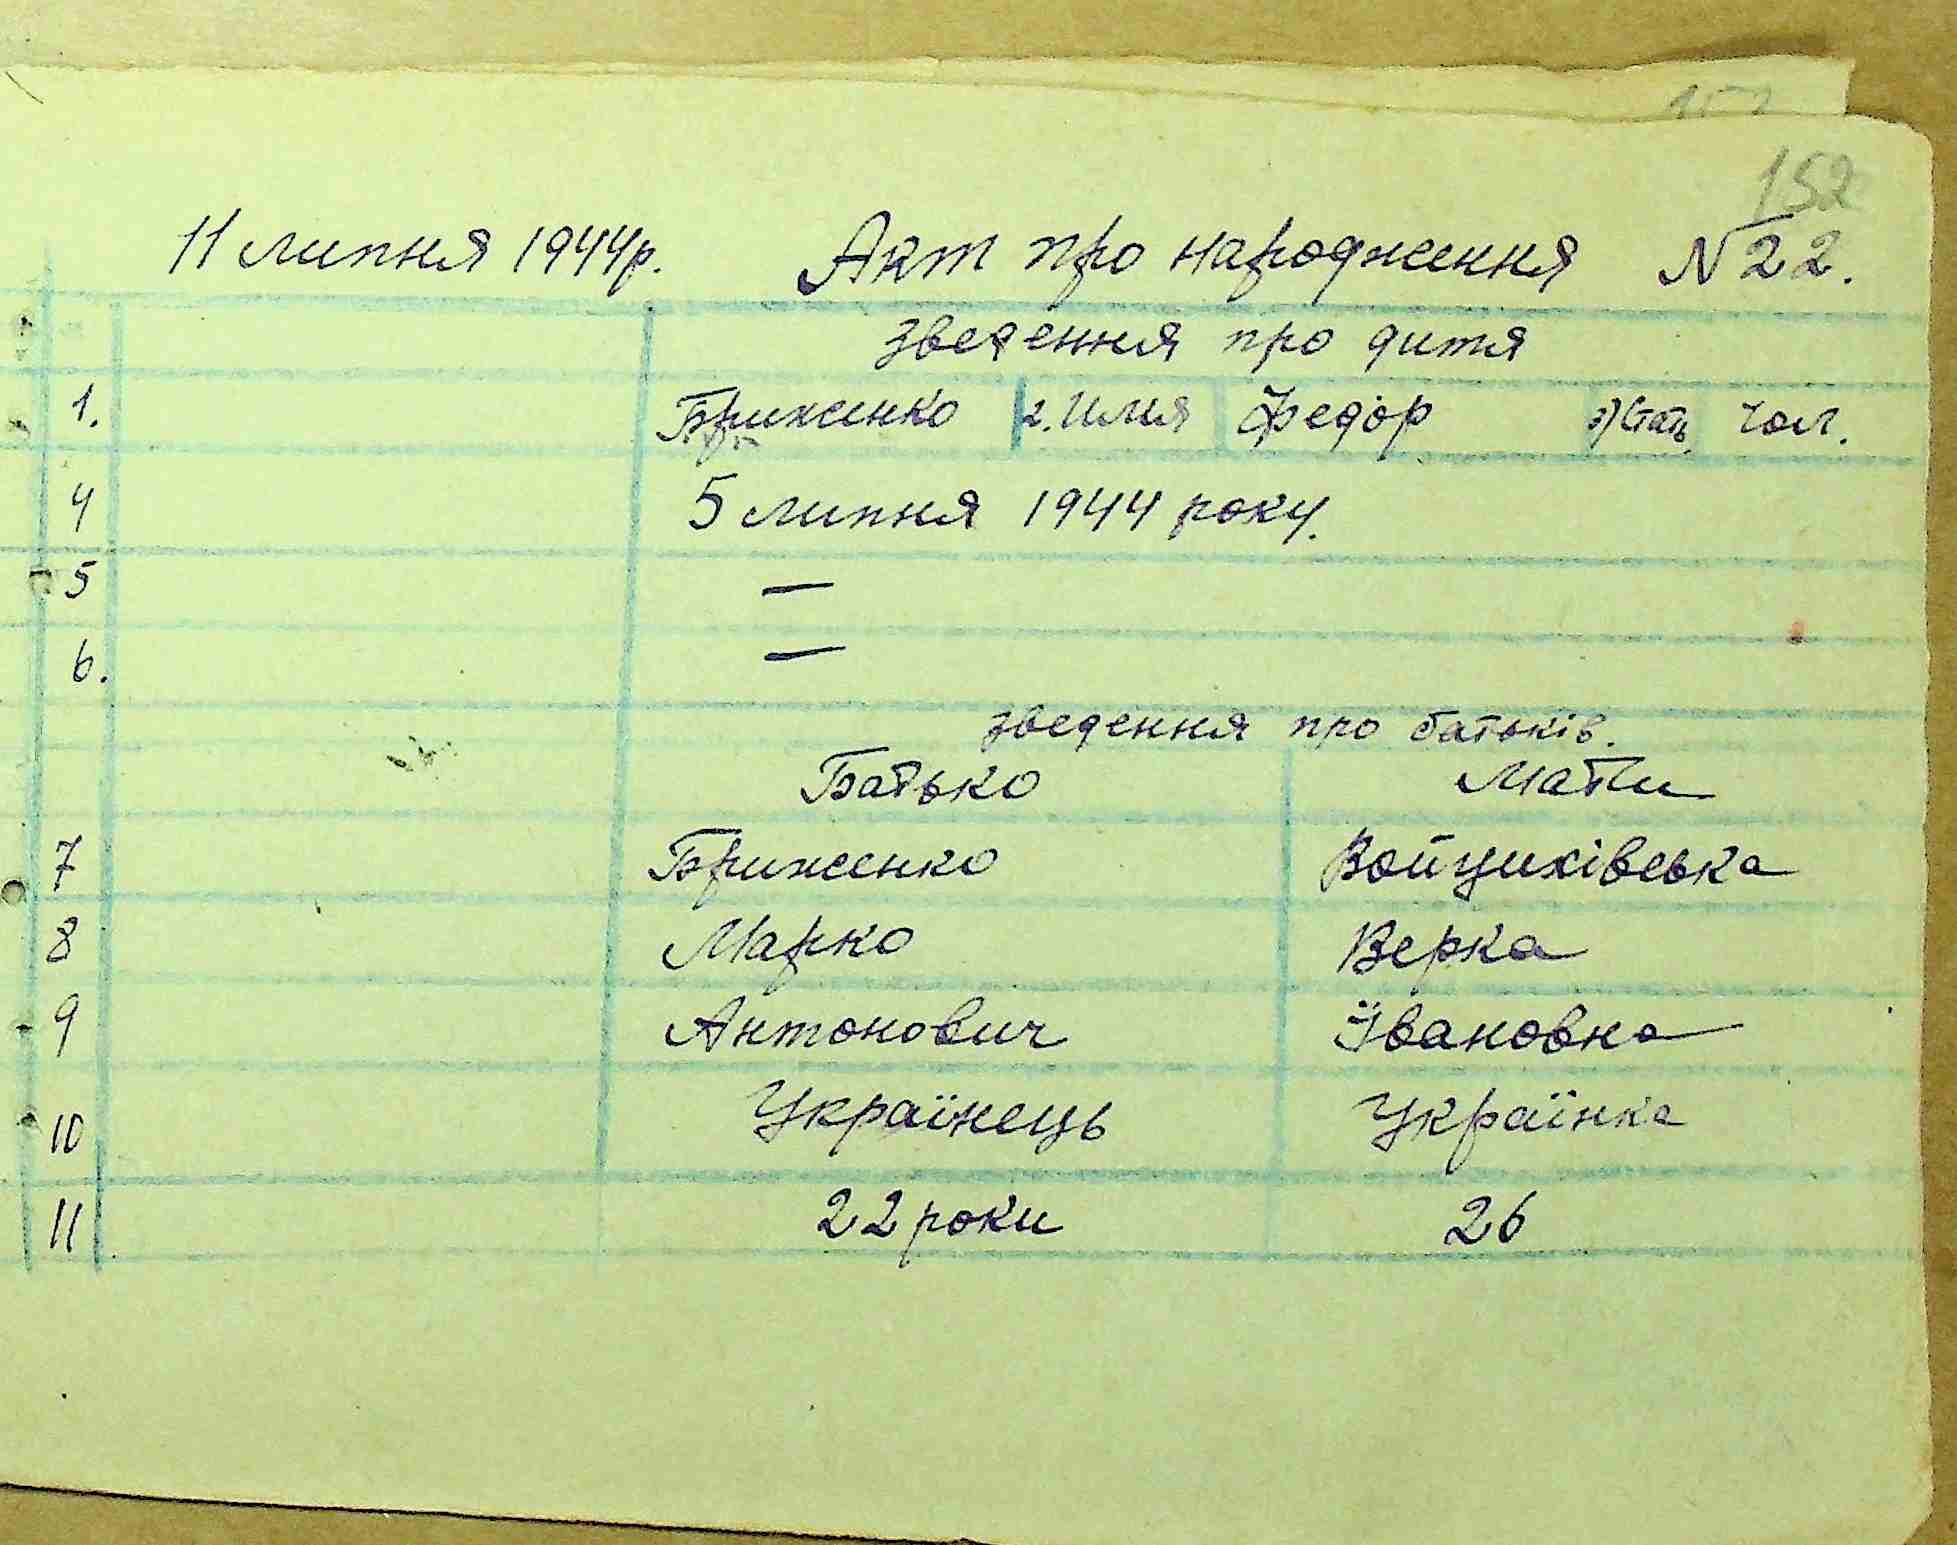 152
11 липня 1944р. Акт про народження N 22.
зведення про дитя
1. Бриженко 2. Имя Федор 3) Стать чол.
4 5 липня 1944 року.
5 —
6. —
зведення про батьків.
Батько Мати
7 Бриженко Войцихівська
8 Марко Верка
9 Антонович Івановна
10 Українець Українка
11 22 роки 26